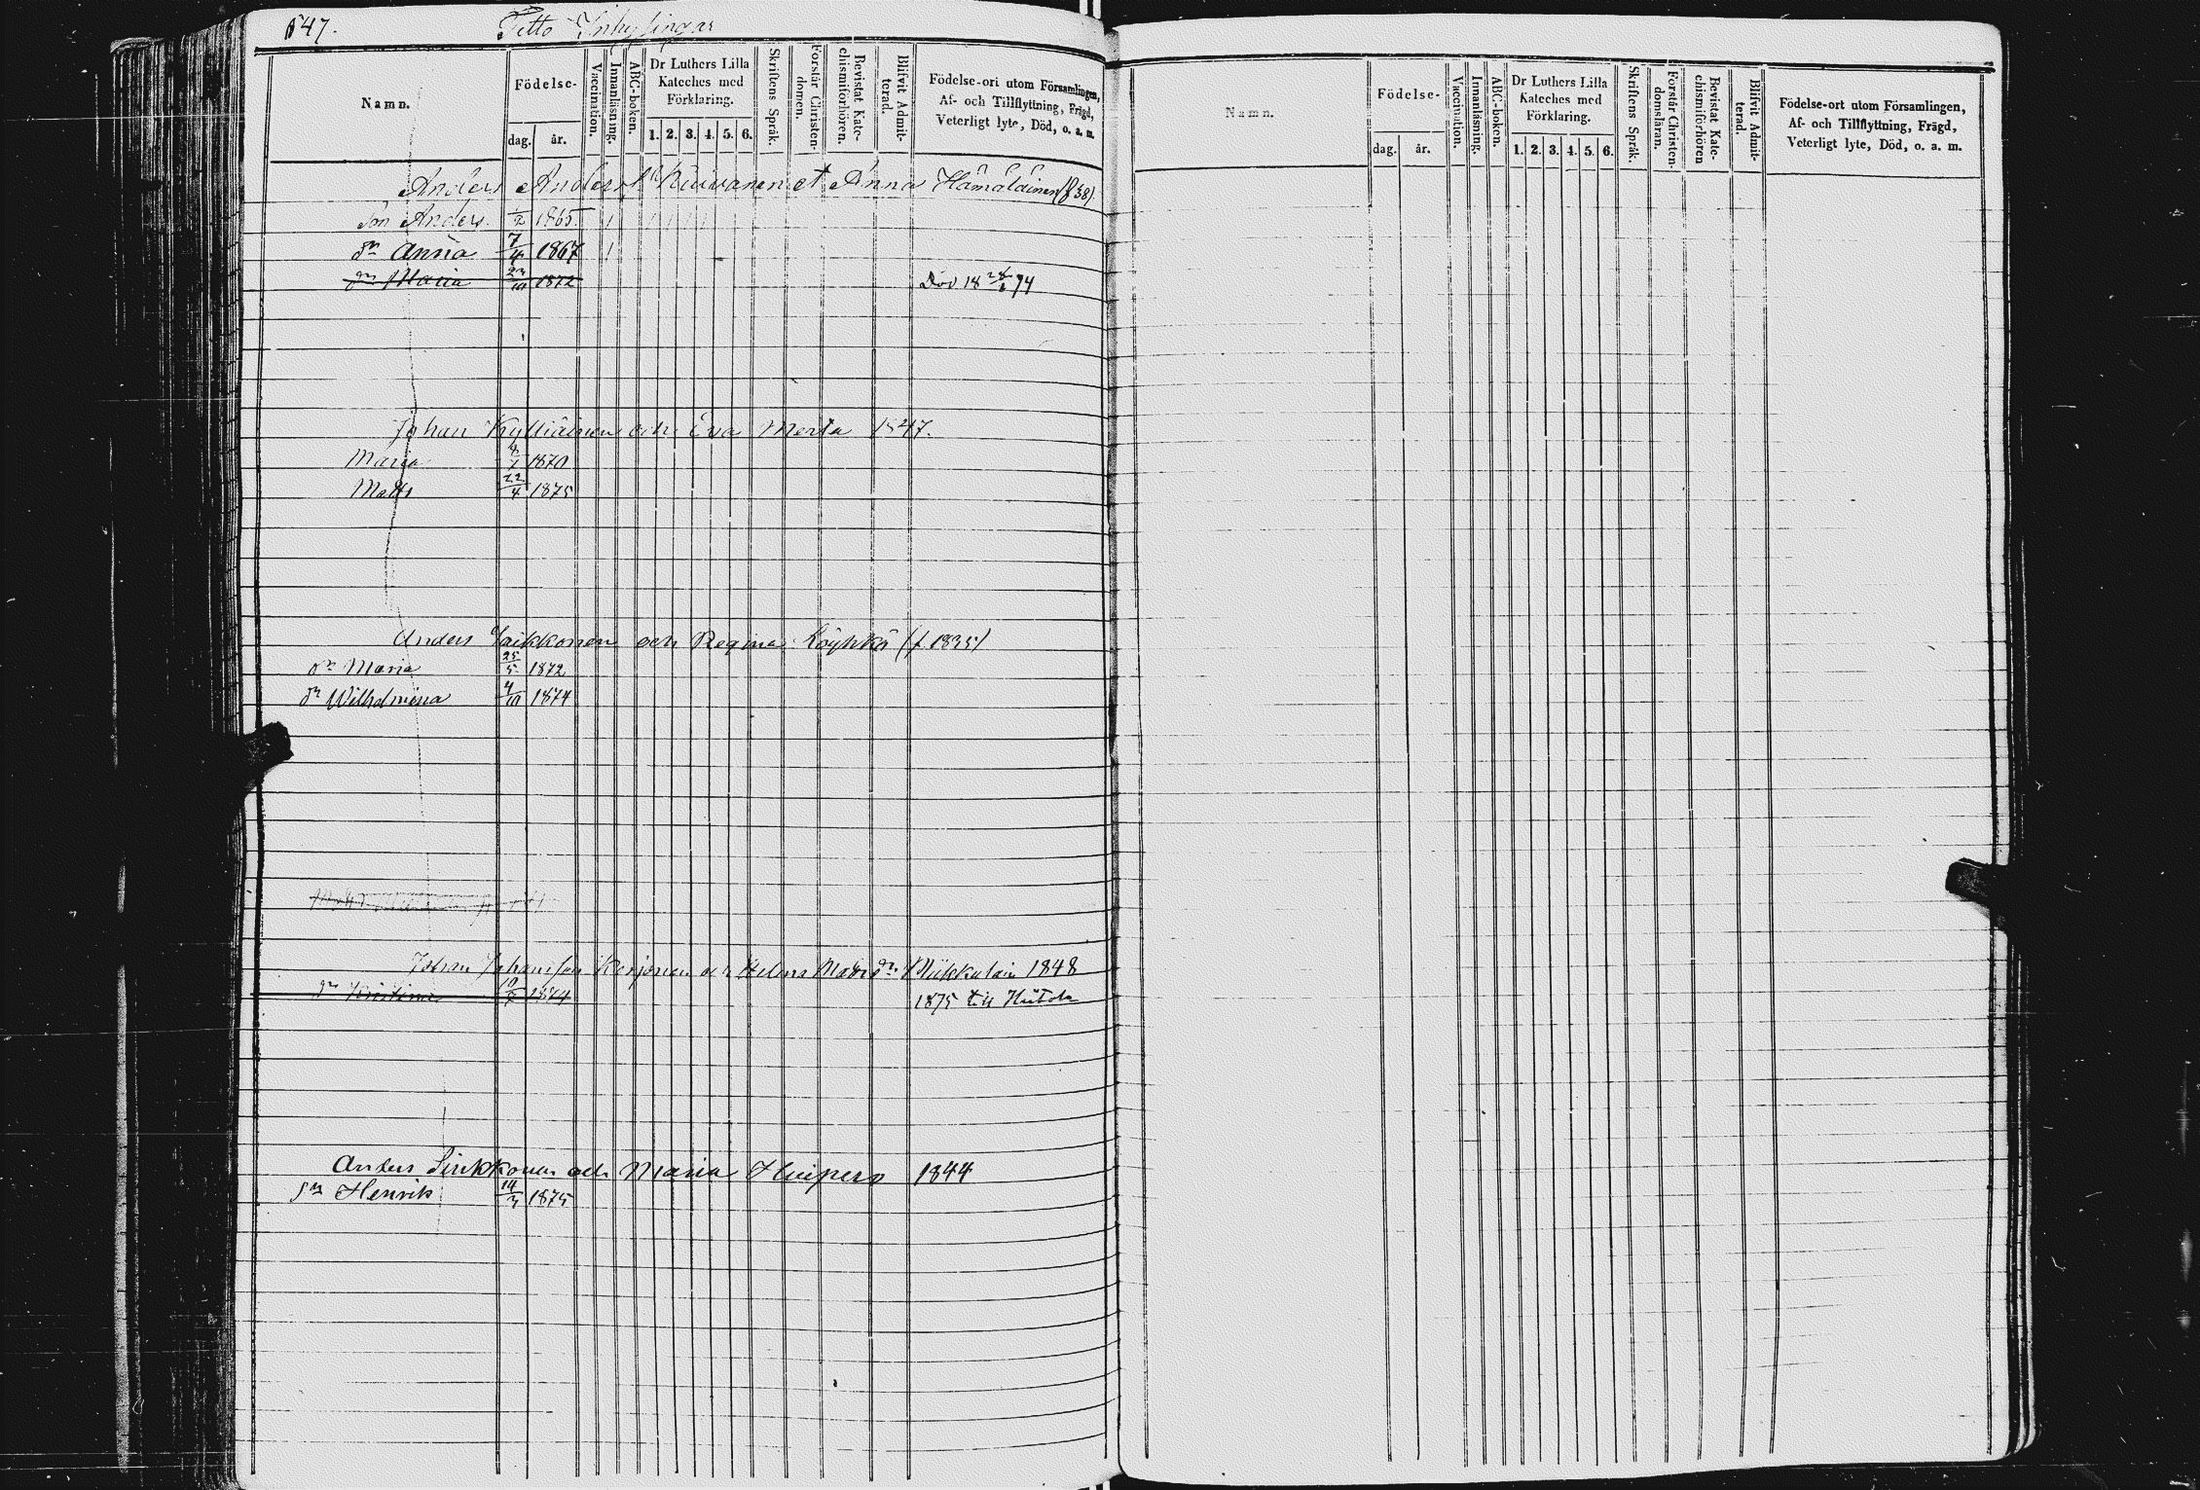 547. Titto Inhysingar
Namn.
Födelse-
dag. år.
Vaccination.
Innanläsning.
ABC-boken.
Dr Luthers Lilla
Kateches med
Förklaring.
1. 2. 3. 4. 5. 6.
Skriftens Språk.
Förstår Christen-
domen.
Bevistat Kate-
chismiförhören.
Blifvit Admit-
terad.
Födelse-ort utom Församlingen,
Af- och Tillflyttning, Frägd,
Veterligt lyte, Död, o. a. m.
Anders Andersson Kuivanen et Anna Hämäläinen (f 38)
Son Anders 1/2 1865
dr Anna 7/4 1867
dr Maria 23/10 1872 Död 18 /94
Johan Kylliäinen och Eva Merta 1847.
Maria 1870
Matts 22/4 1875
Anders Laikkonen och Regina Löyhkö (f 1835)
dr Maria 25/5 1872
dr Wilhelmina 4/10 1874
Johan Johansson Korjonen och Helena Matts dr Hiikkulain 1848
dr Kristina 1874 1875 till Hiitola
Anders Sirkkonen och Maria Huipero 1844
sn Henrik 14/3 1875
Namn.
Födelse-
dag. år.
Vaccination.
Innanläsning.
ABC-boken.
Dr Luthers Lilla
Kateches med
Förklaring.
1. 2. 3. 4. 5. 6.
Skriftens Språk.
Förstår Christen-
domsläran.
Bevistat Kate-
chismiförhören
Blifvit Admit-
terad.
Födelse-ort utom Församlingen,
Af- och Tillflyttning, Frägd,
Veterligt lyte, Död, o. a. m.